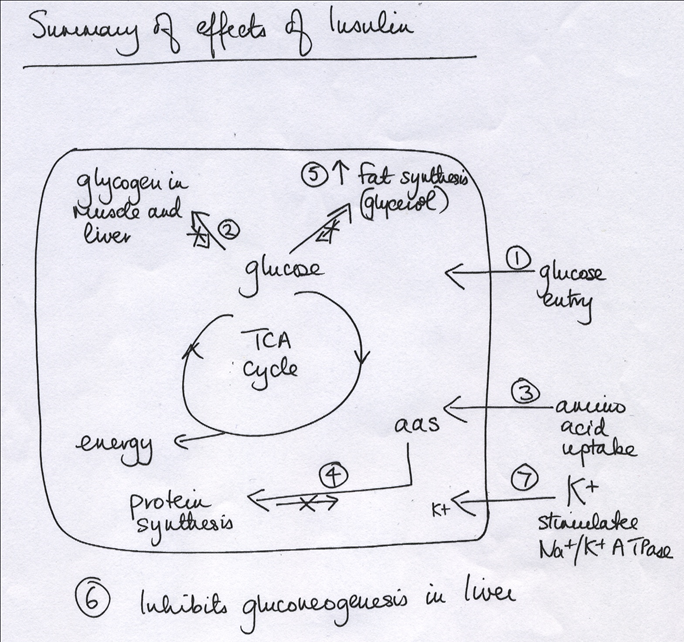 Summary of effects of Insulin
glycogen in
muscle and
liver
②
⑤ ↑ fat synthesis
(glycerol)
glucose
①
glucose
entry
TCA
cycle
③
amino
acid
uptake
aas
energy
④
protein
synthesis
⑦
K+
K+
stimulates
Na+/K+ ATPase
⑥ Inhibits gluconeogenesis in liver